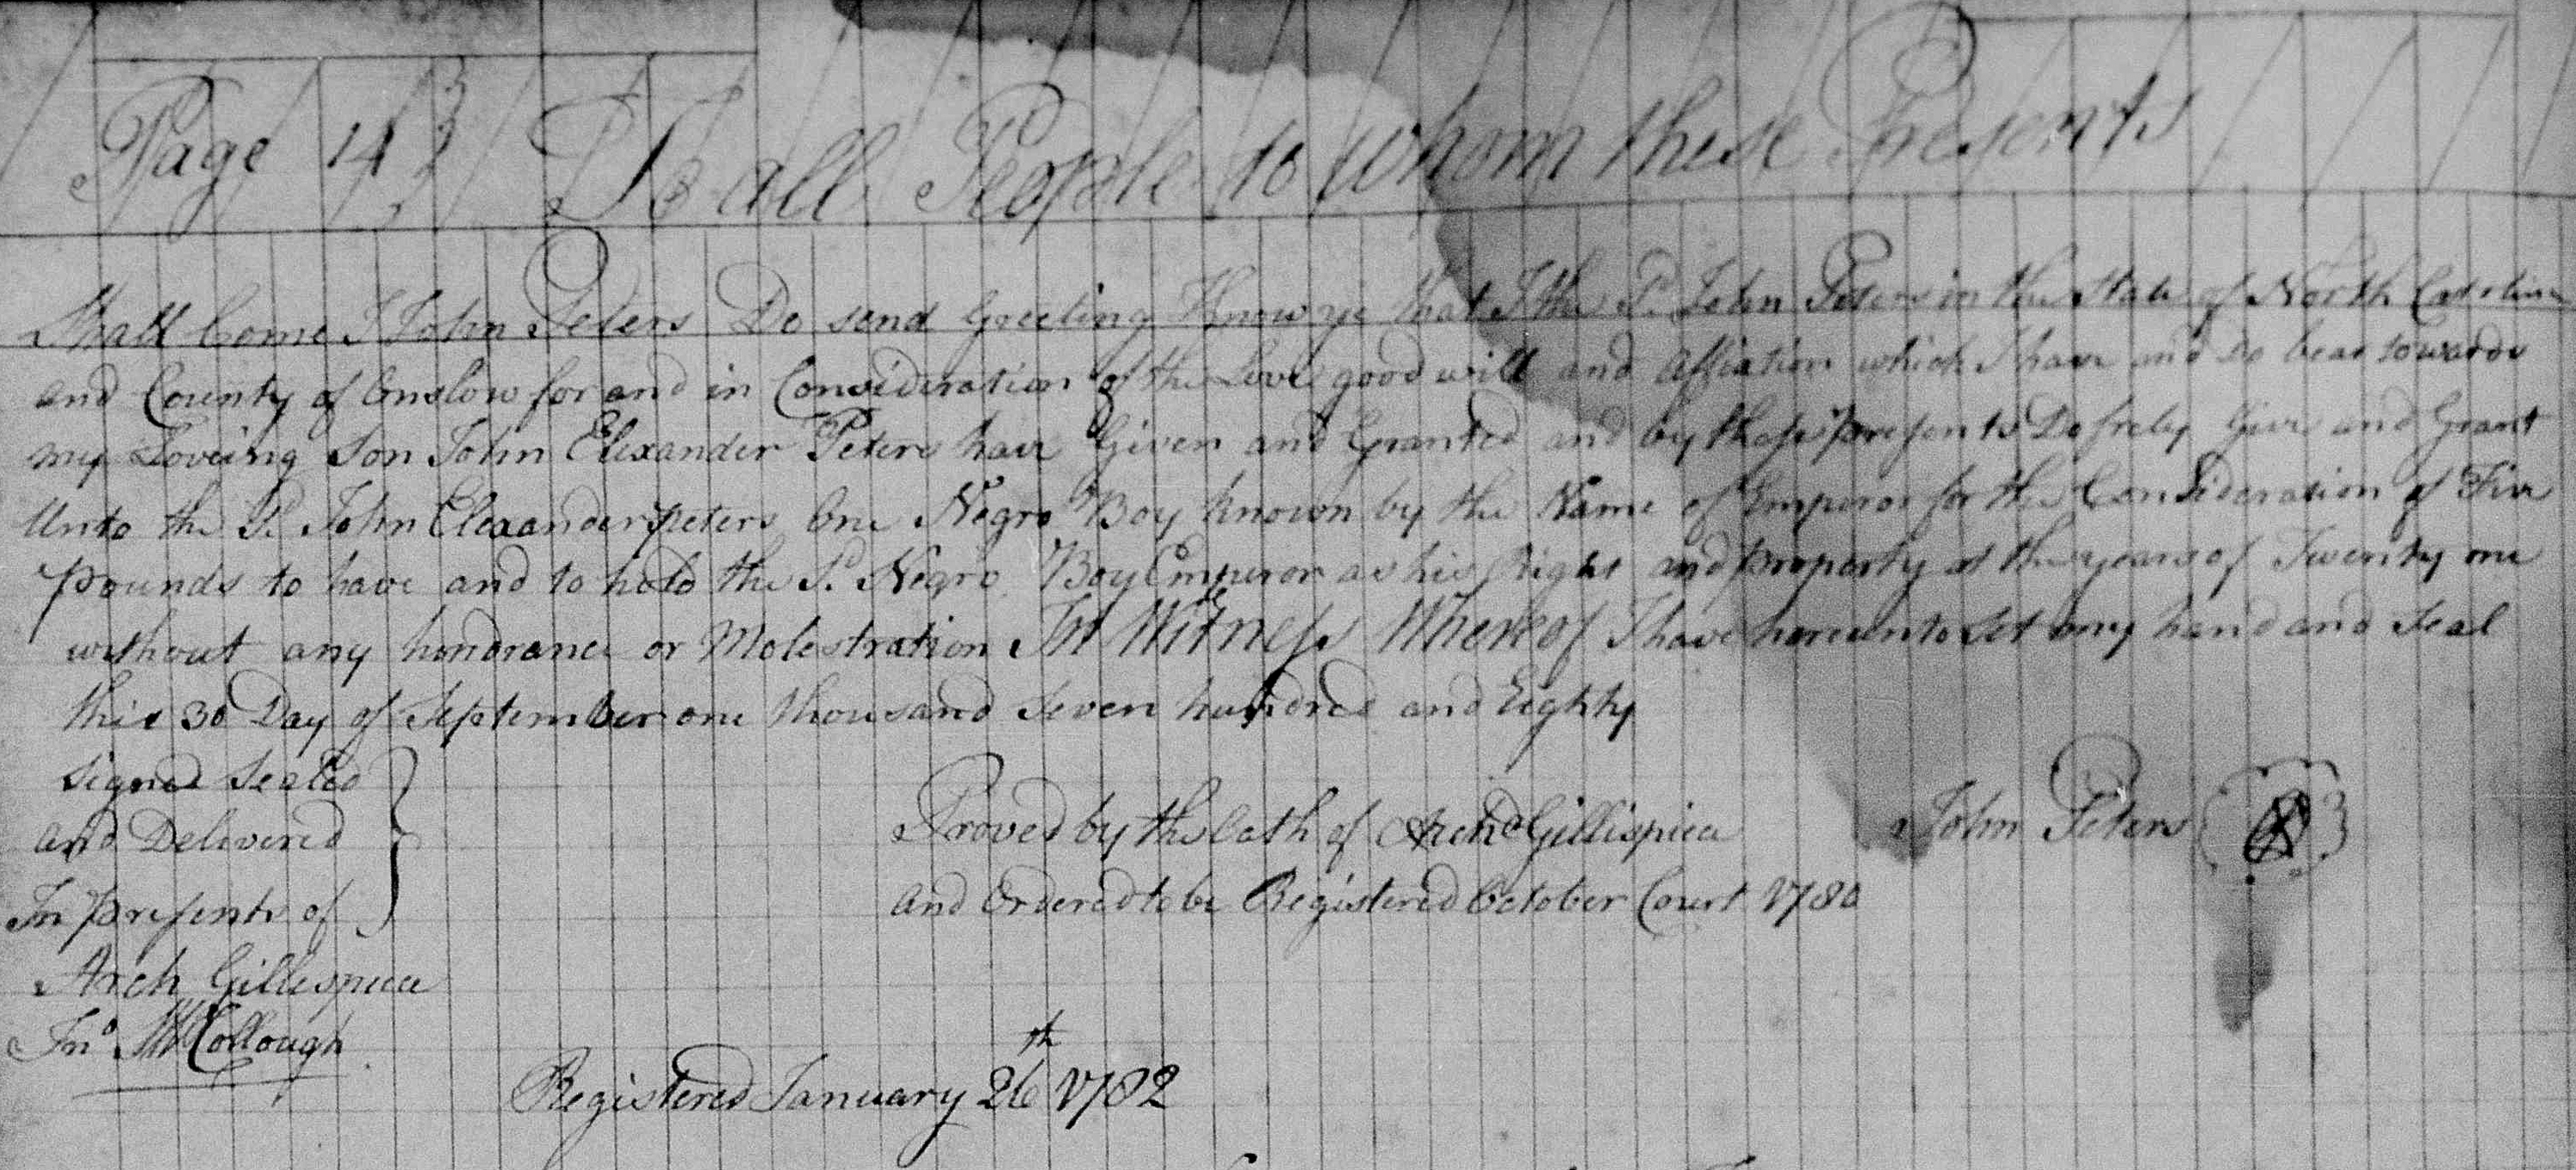 Page 143 To all People to whom these Presents
Shall Come I John Peters Do send Greeting Know ye that I the Sd. John Peters in the State of North Carolina
and County of Onslow for and in Consideration of the Love good will and Affiation which I have and do bear towards
my Loveing Son John Elexander Peters have Given and Granted and by these presents Do frely Give and Grant
Unto the Sd. John Elexander peters One Negro Boy known by the Name of Emperor for the Consideration of Five
pounds to have and to hold the Sd. Negro Boy Emperor as his Right and property at the years of Twenty one
without any hindrance or Molestration In Witness Whereof I have hereunto set my hand and Seal
this 30 Day of September one thousand Seven hundred and Eighty
Signed Sealed
and Delivered
In presents of
Arch Gillespiea
Jno McCollough
John Peters
Proved by the Oath of Archd Gillispiea
and Ordered to be Registered October Court 1780
Registered January 26th 1782